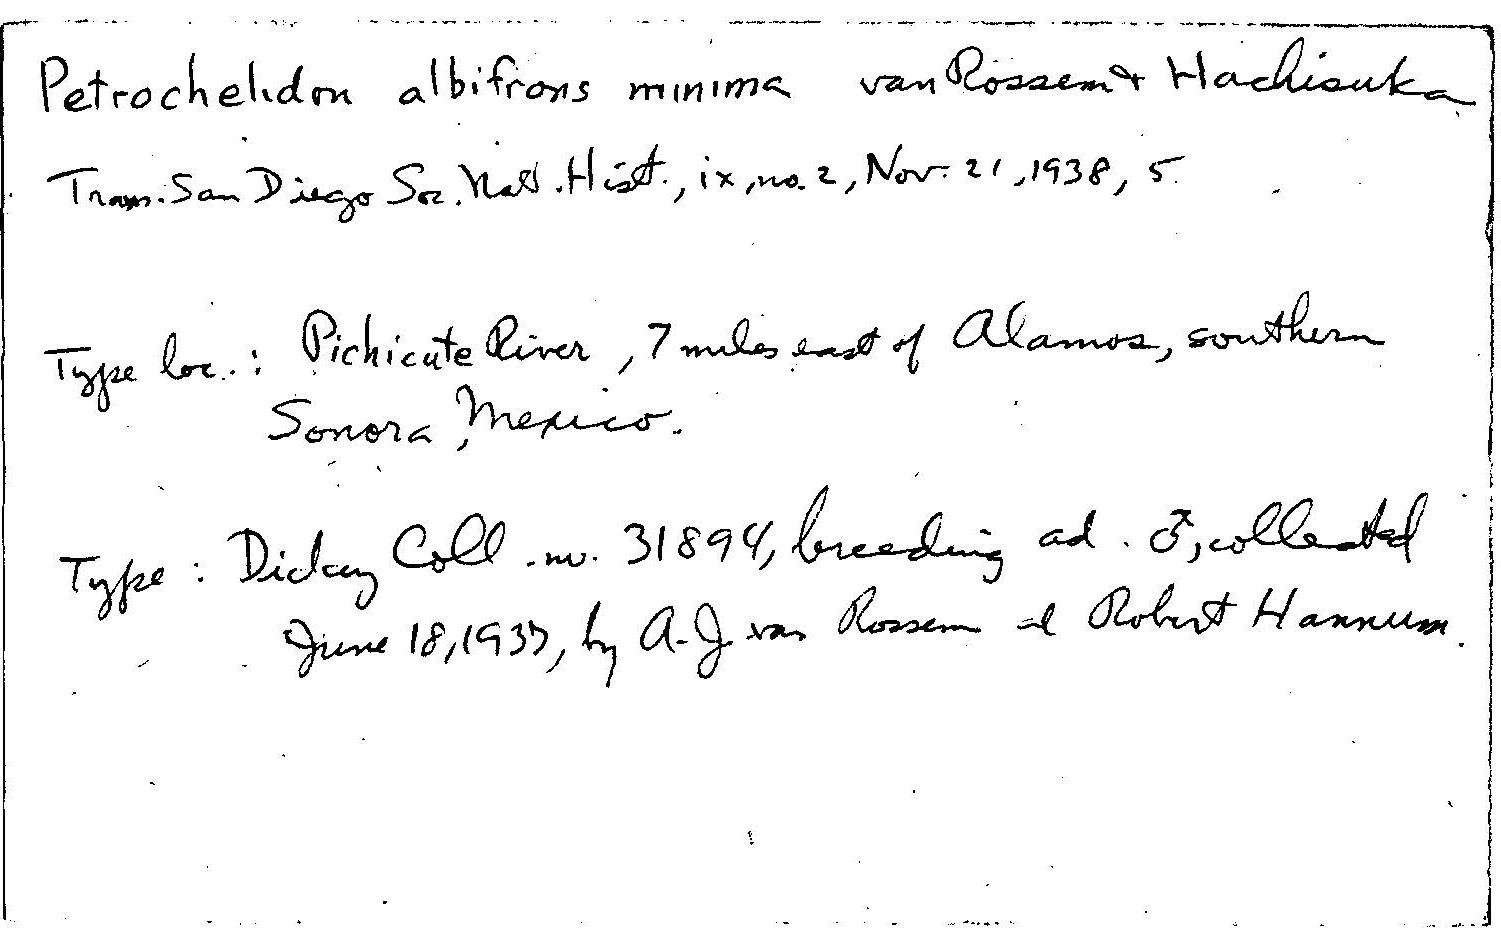 Petrochelidon albifrons minima van Rossem & Hachisuka
Trans. San Diego Soc. Nat. Hist., ix, no. 2, Nov. 21, 1938, 5.
Type loc. : Pichicute River, 7 miles east of Alamos, southern
Sonora, Mexico.
Type : Dickey Coll. no. 31894, breeding ad. ♂, collected
June 18, 1937, by A. J. van Rossem and Robert Hannum.